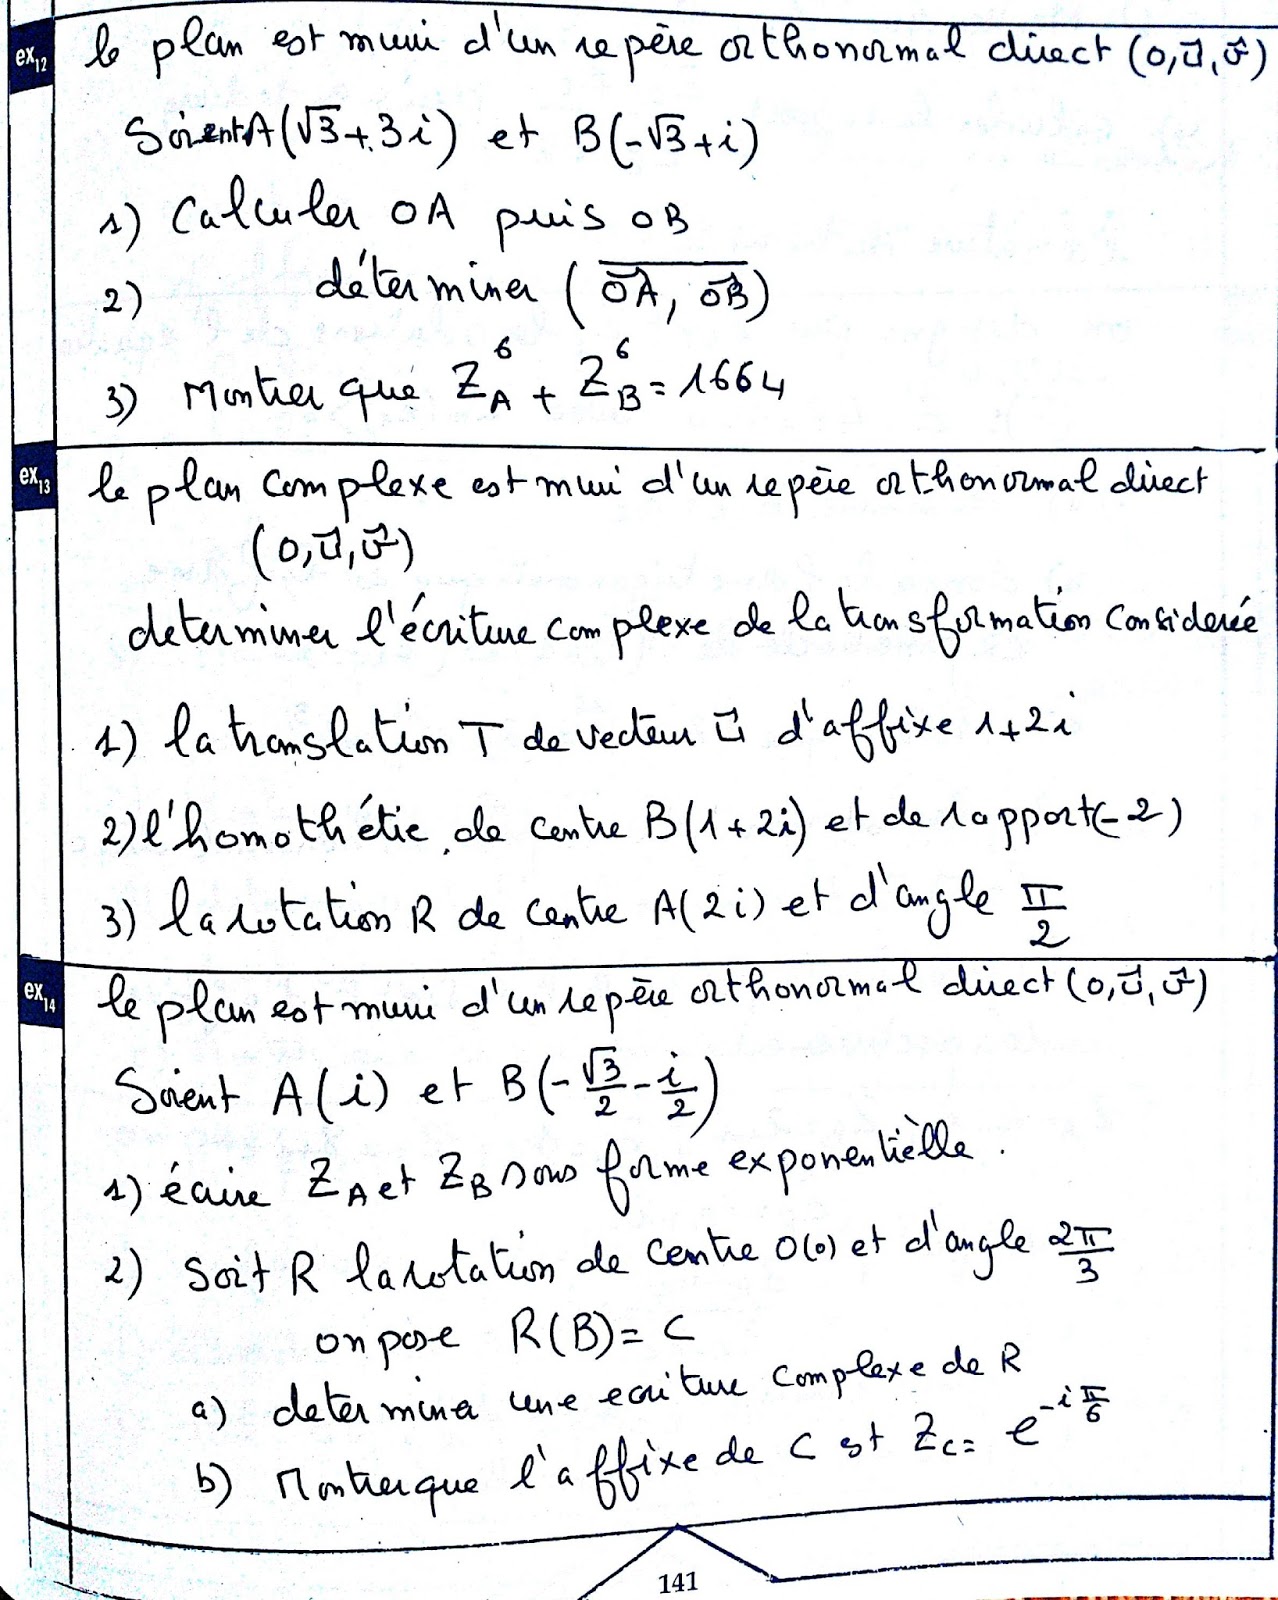 ex12 le plan est muni d'un repère orthonormal direct (O, u⃗, v⃗)
Soient A(√3+3i) et B(-√3+i)
1) Calculer OA puis OB
2) déterminer (OA⃗, OB⃗)
3) Montrer que Z_A^6 + Z_B^6 = 1664
ex13 le plan complexe est muni d'un repère orthonormal direct
(O, u⃗, v⃗)
determiner l'écriture complexe de la transformation considerée
1) la translation T de vecteur u⃗ d'affixe 1+2i
2) l'homothétie de centre B(1+2i) et de rapport (-2)
3) la rotation R de centre A(2i) et d'angle π/2
ex14 le plan est muni d'un repère orthonormal direct (O, u⃗, v⃗)
Soient A(i) et B(-√3/2 - i/2)
1) écrire Z_A et Z_B sous forme exponentièlle.
2) Soit R la rotation de centre O(0) et d'angle 2π/3
on pose R(B) = C
a) determiner une ecriture complexe de R
b) Montrer que l'affixe de C est Z_C = e^(-iπ/6)
141